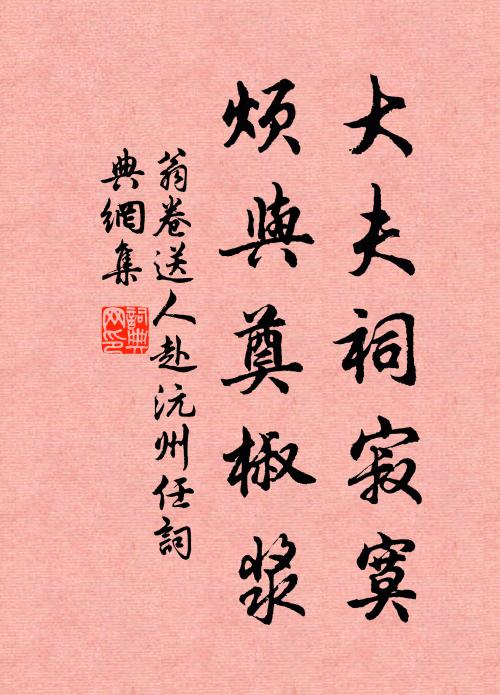 大夫祠寂寞
煩與奠椒漿
翁卷送人赴沅州任詞
典網集
詞典网印